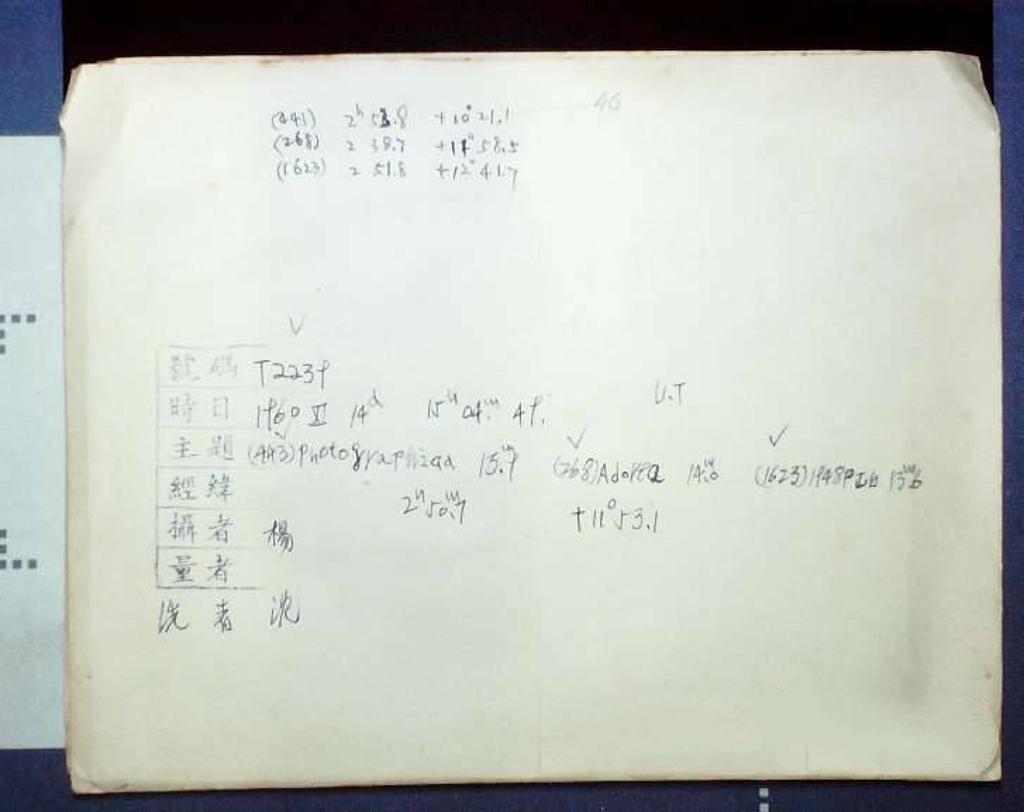 46
(441) 2ʰ 53.8 +10° 21.1
(268) 2 38.7 +11° 58.5
(1623) 2 51.8 +12° 41.7
號碼 T2239
時日 1960 XI 14ᵈ 15ʰ 04ᵐ. 49. U.T
主題 (443) Photographica 13ᵐ.9 (268) Adorea 14ᵐ.0 (1623) 1948 13ᵐ.6
經緯 2ʰ 50ᵐ.7 +11° 53.1
攝者 楊
量者
洗者 沈